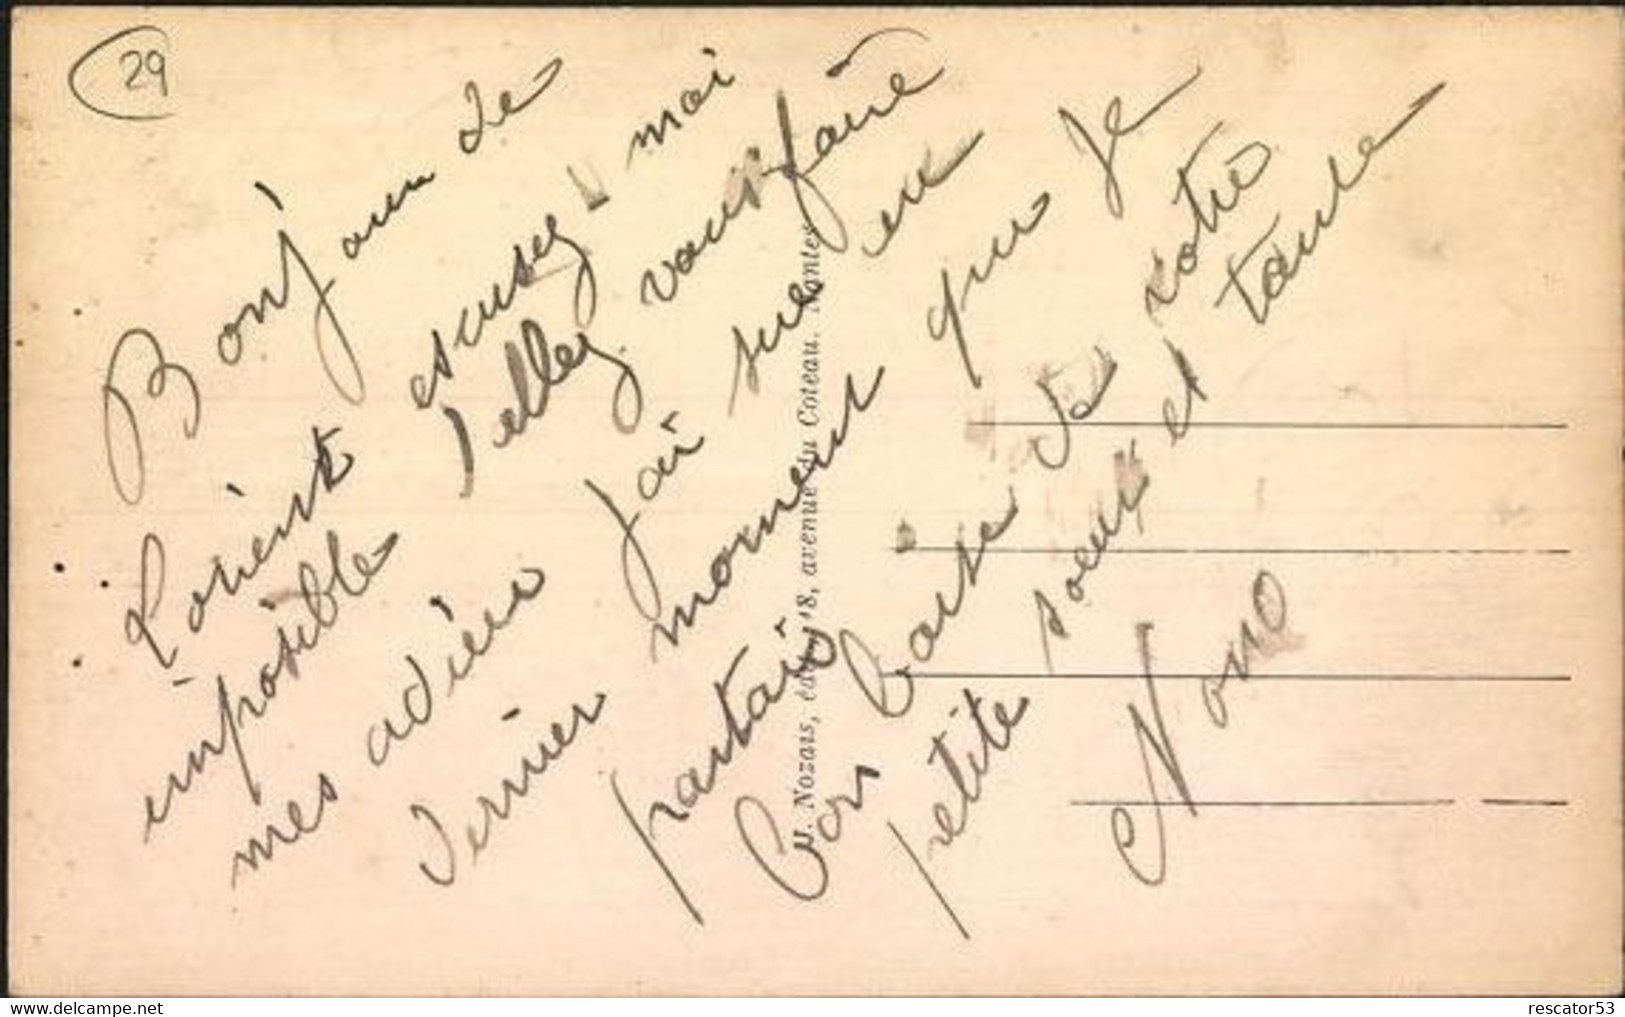 29
Bonjour de
Lorient escusez moi
imposible dellez vous faire
mes adieu jai sue en
dernier moment que je
partais
Bon Baise de votre
petite soeur et tante
Nono
J. Nozais, édit., 18, avenue du Coteau. Nantes
rescator53